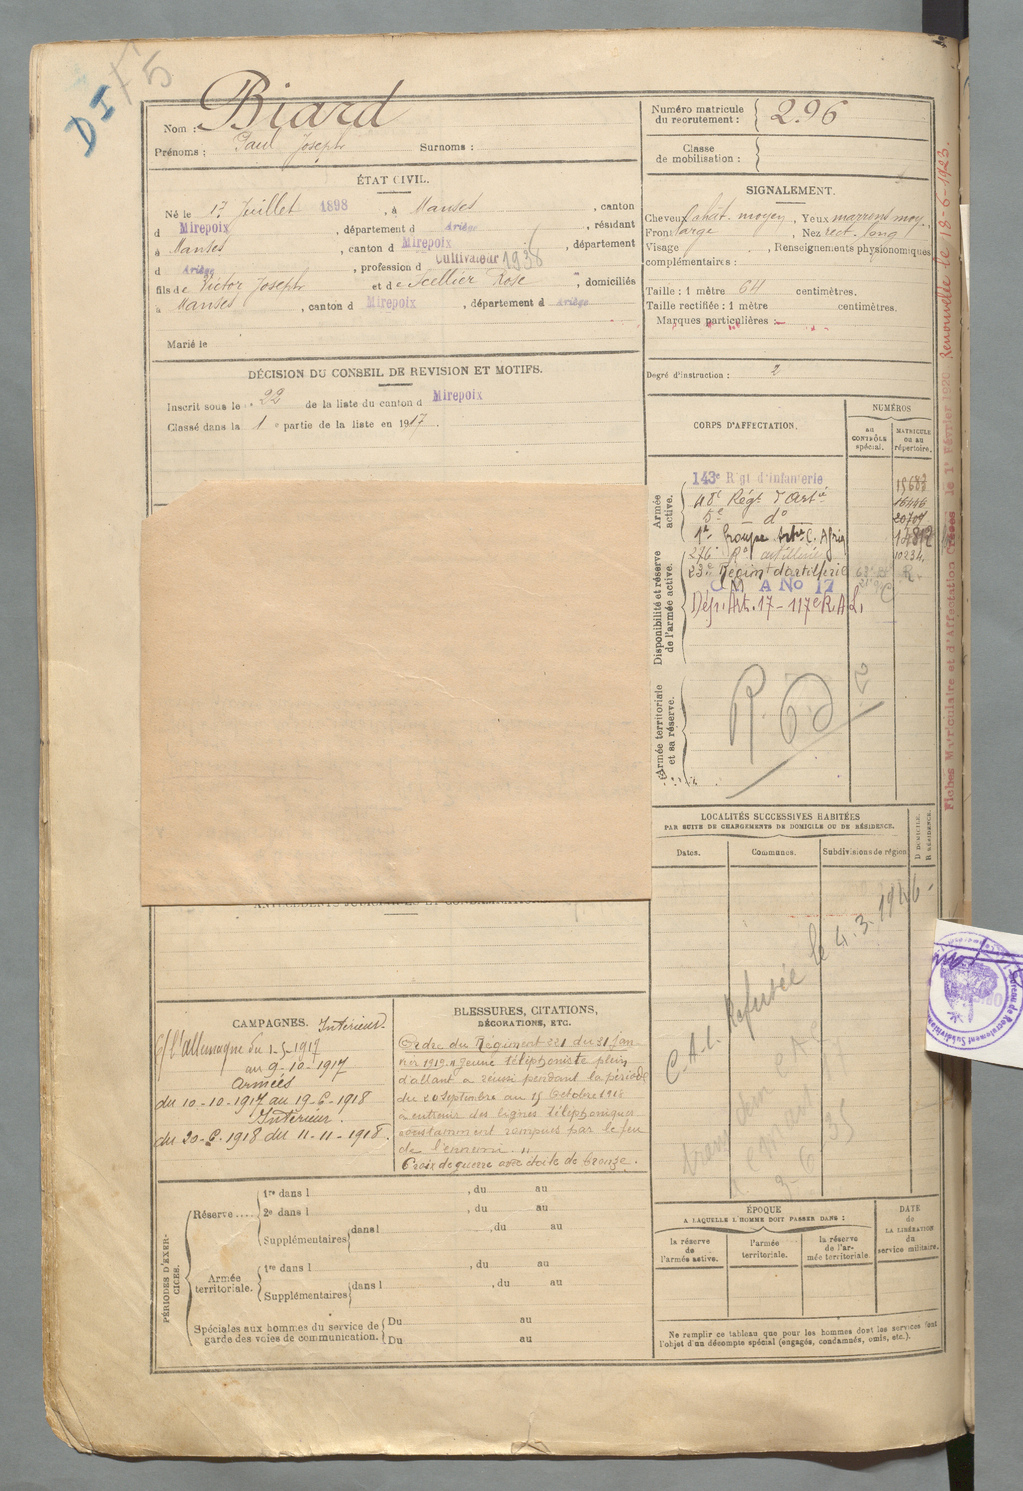 DI
F5
Nom : Biard
Prénoms : Paul Joseph Surnoms :
Numéro matricule du recrutement : 296
Classe de mobilisation :
ÉTAT CIVIL.
Né le 17 Juillet 1898, à Manses, canton
d Mirepoix, département d Ariège, résidant
à Manses, canton d Mirepoix, département
d Ariège, profession d Cultivateur 1938
fils de Victor Joseph et de Scellier Rose, domiciliés
à Manses, canton d Mirepoix, département d Ariège
Marié le
SIGNALEMENT.
Cheveux chât. moyen, Yeux marrons moy.
Front large, Nez rect. long
Visage , Renseignements physionomiques
complémentaires :
Taille : 1 mètre 64 centimètres.
Taille rectifiée : 1 mètre centimètres.
Marques particulières :
Degré d'instruction : 2
DÉCISION DU CONSEIL DE REVISION ET MOTIFS.
Inscrit sous le n° 22 de la liste du canton d Mirepoix
Classé dans la 1e partie de la liste en 1917.
CORPS D'AFFECTATION.
NUMÉROS
AU CONTRÔLE spécial.
MATRICULE ou au répertoire.
Armée active.
143e Rgt d'Infanterie
48e Régt d'Artie 16446
5e — do 20709
1er Groupe Artie C. Afriq
Disponibilité et réserve de l'armée active.
276e Rt artillerie 10234
23e Régimt d'artillerie R.
C M A No 17 C
Dép. Art. 17 - 117e R.A.L.
Armée territoriale et sa réserve.
LOCALITÉS SUCCESSIVES HABITÉES
PAR SUITE DE CHANGEMENTS DE DOMICILE OU DE RÉSIDENCE.
Dates. Communes. Subdivisions de région.
D DOMICILE.
R RÉSIDENCE.
C.A.C. Refusée le 4.3.1946
3-6 35
Fiches Matriculaire et d'Affectation Créées le 1er Février 1920 Renouvelée le 18-6-1923.
CAMPAGNES. Intérieur.
Cf l'Allemagne du 1-5-1917
au 9-10-1917
Armées
du 10-10-1917 au 19-6-1918
Intérieur.
du 20-6-1918 au 11-11-1918.
BLESSURES, CITATIONS,
DÉCORATIONS, ETC.
Ordre du Régiment 221 du 31 jan
vier 1919. "Jeune téléphoniste plein
d'allant a réussi pendant la période
du 20 septembre au 15 Octobre 1918
à entretenir des lignes téléphoniques
constamment rompues par le feu
de l'ennemi."
Croix de guerre avec étoile de bronze.
PÉRIODES D'EXERCICES.
Réserve.... 1re dans l , du au
2e dans l , du au
Supplémentaires dans l , du au
Armée territoriale. 1re dans l , du au
Supplémentaires dans l , du au
Spéciales aux hommes du service de garde des voies de communication. Du au
Du au
ÉPOQUE
A LAQUELLE L'HOMME DOIT PASSER DANS :
la réserve de l'armée active.
l'armée territoriale.
la réserve de l'armée territoriale.
DATE de LA LIBÉRATION du service militaire.
Ne remplir ce tableau que pour les hommes dont les services font
l'objet d'un décompte spécial (engagés, condamnés, omis, etc.).
Bureau de Recrutement Subdivision